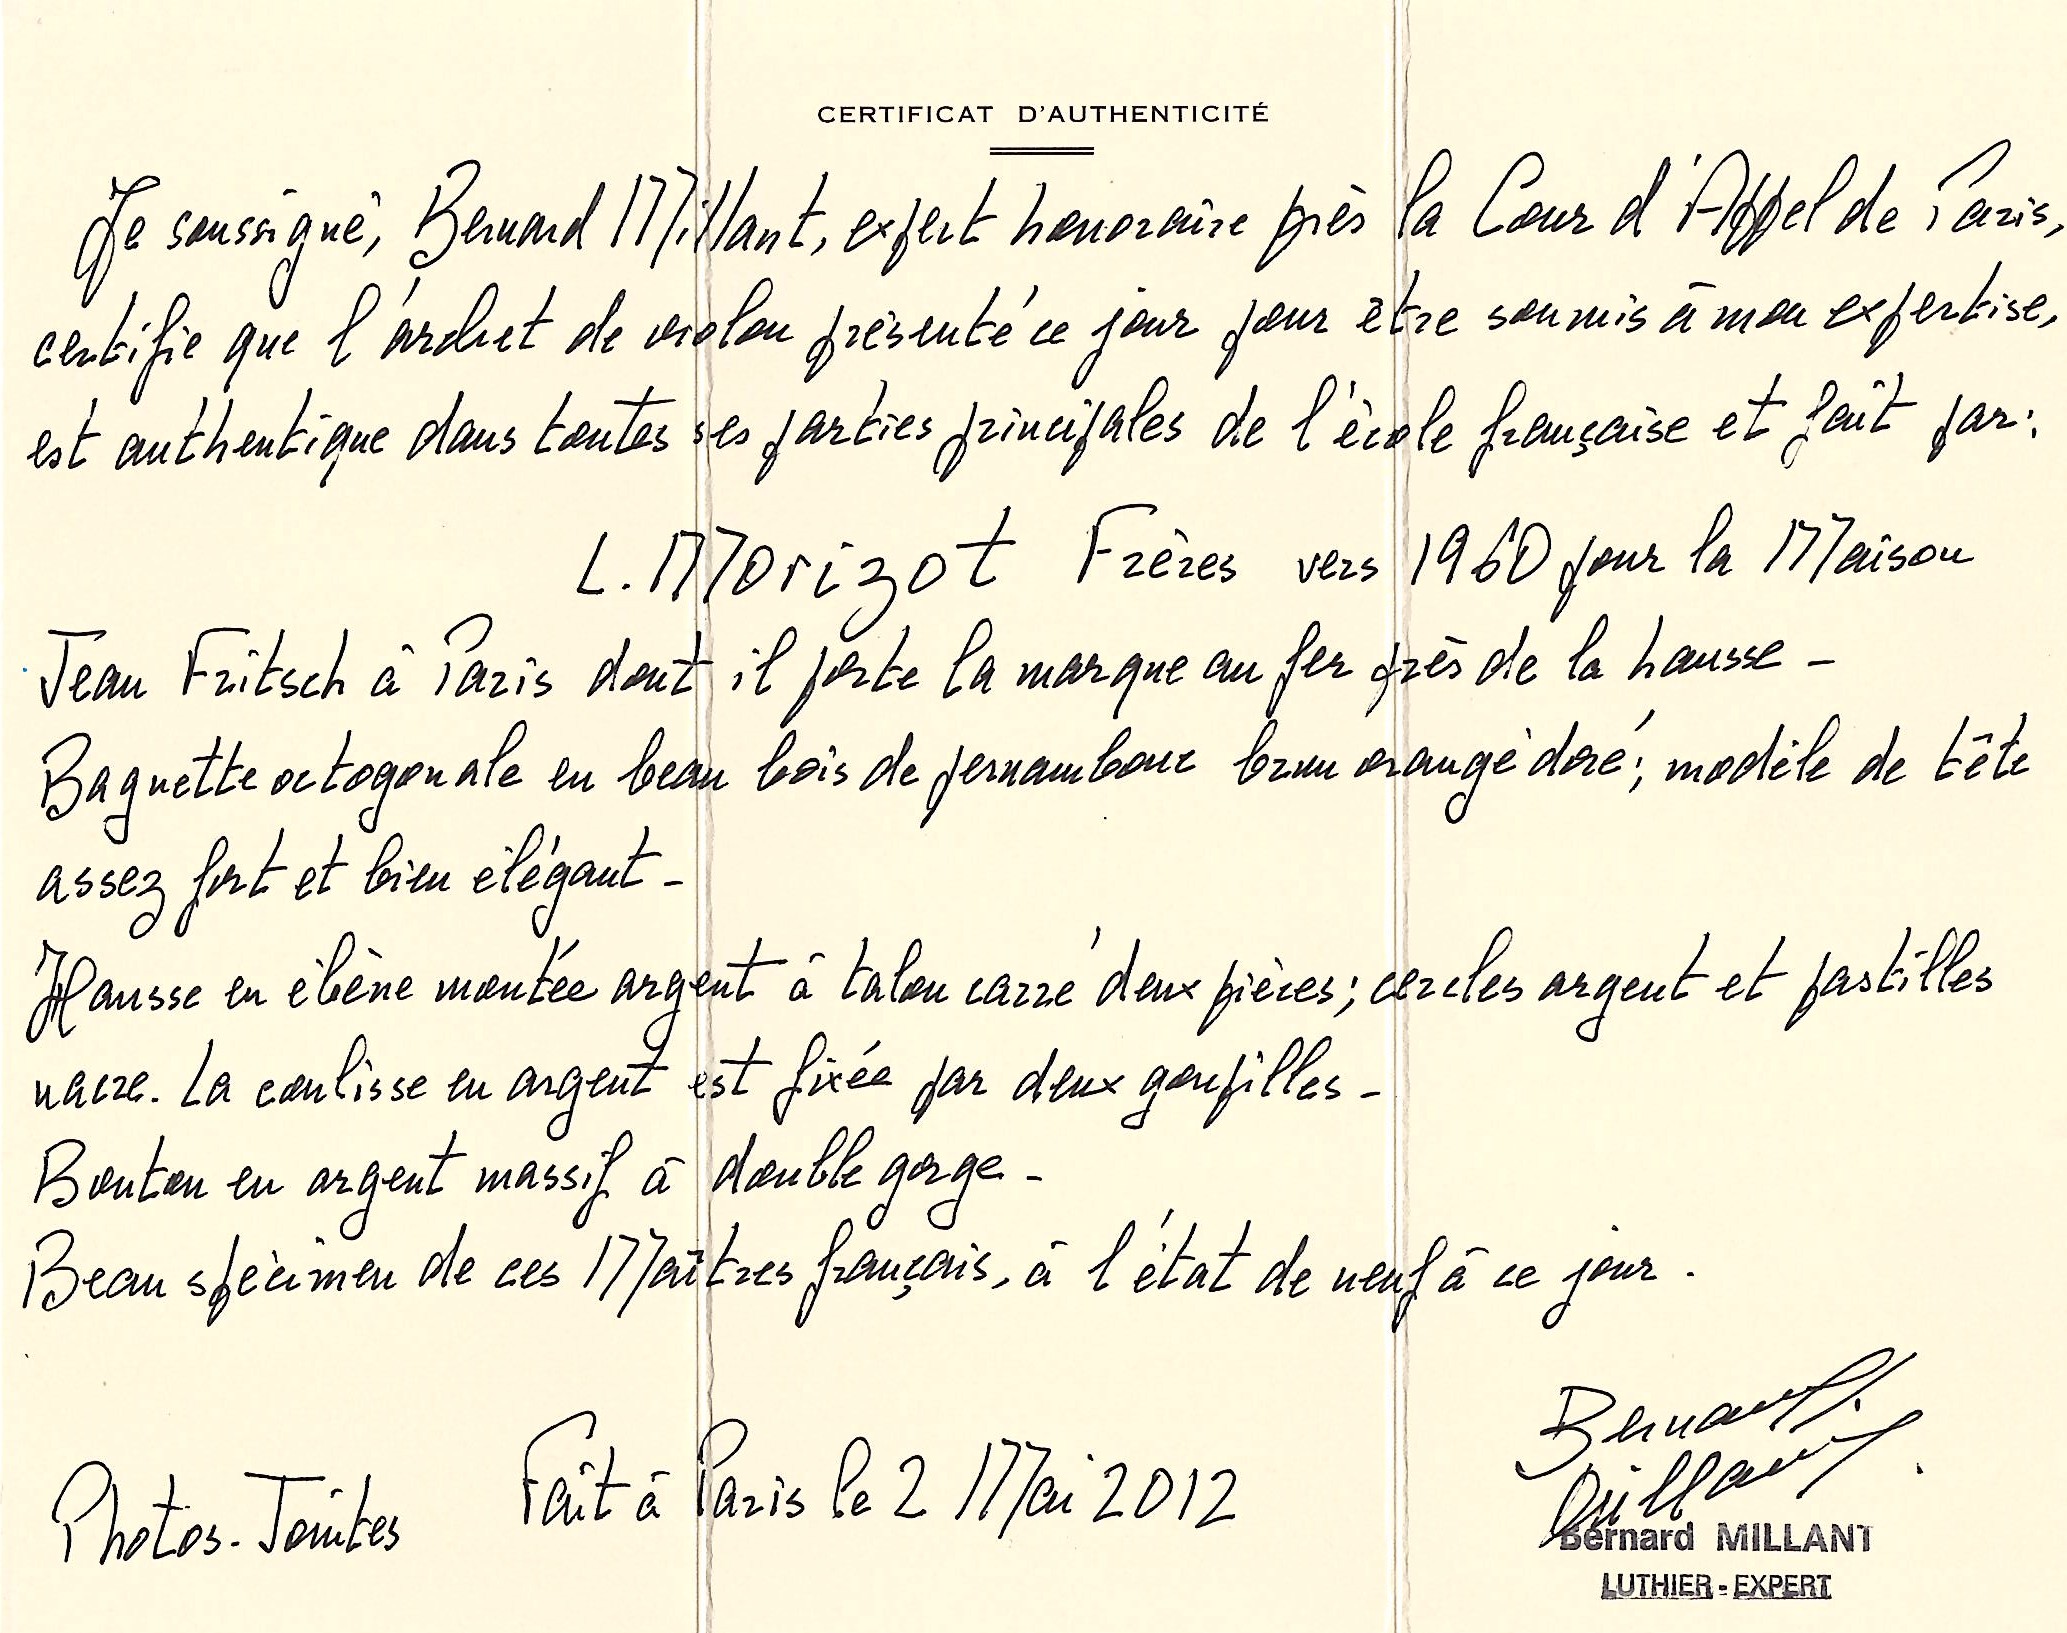 CERTIFICAT D'AUTHENTICITÉ
Je soussigné, Bernard Millant, expert honoraire près la Cour d'Appel de Paris,
certifie que l'archet de violon présenté ce jour pour être soumis à mon expertise,
est authentique dans toutes ses parties principales de l'école française et fait par:
L. Morizot Frères vers 1960 pour la Maison
Jean Fritsch à Paris dont il porte la marque au fer près de la hausse -
Baguette octogonale en beau bois de pernambouc brun orangé doré; modèle de tête
assez fort et bien élégant -
Hausse en ébène montée argent à talon carré deux pièces; cercles argent et pastilles
nacre. La coulisse en argent est fixée par deux goupilles -
Bouton en argent massif à double gorge -
Beau spécimen de ces Maîtres français, à l'état de neuf à ce jour.
Photos-Jointes Fait à Paris le 2 Mai 2012
Bernard
Millant
Bernard MILLANT
LUTHIER - EXPERT